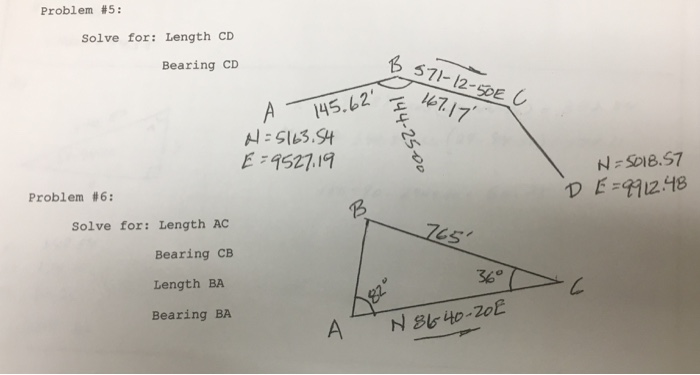 Problem #5:
Solve for: Length CD
Bearing CD
B S71-12-50E C
A 145.62' 144-25-00 167.17'
N = 5163.54
E = 9527.19
N = 5018.57
D E = 9912.48
Problem #6:
Solve for: Length AC
Bearing CB
Length BA
Bearing BA
B
765'
36°
C
82°
A N 86-40-20E